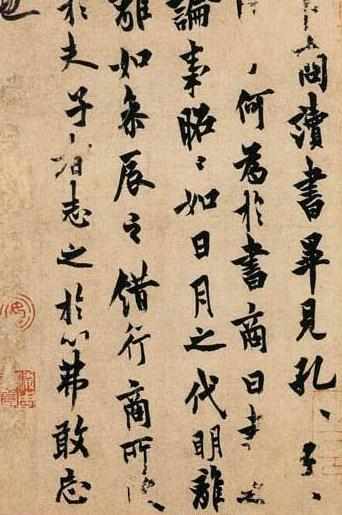 商讀書畢見孔〻子〻
何為於書商曰書
論事昭〻如日月之代明離
離如參辰之錯行商所
於夫子者志之於心弗敢忘
也